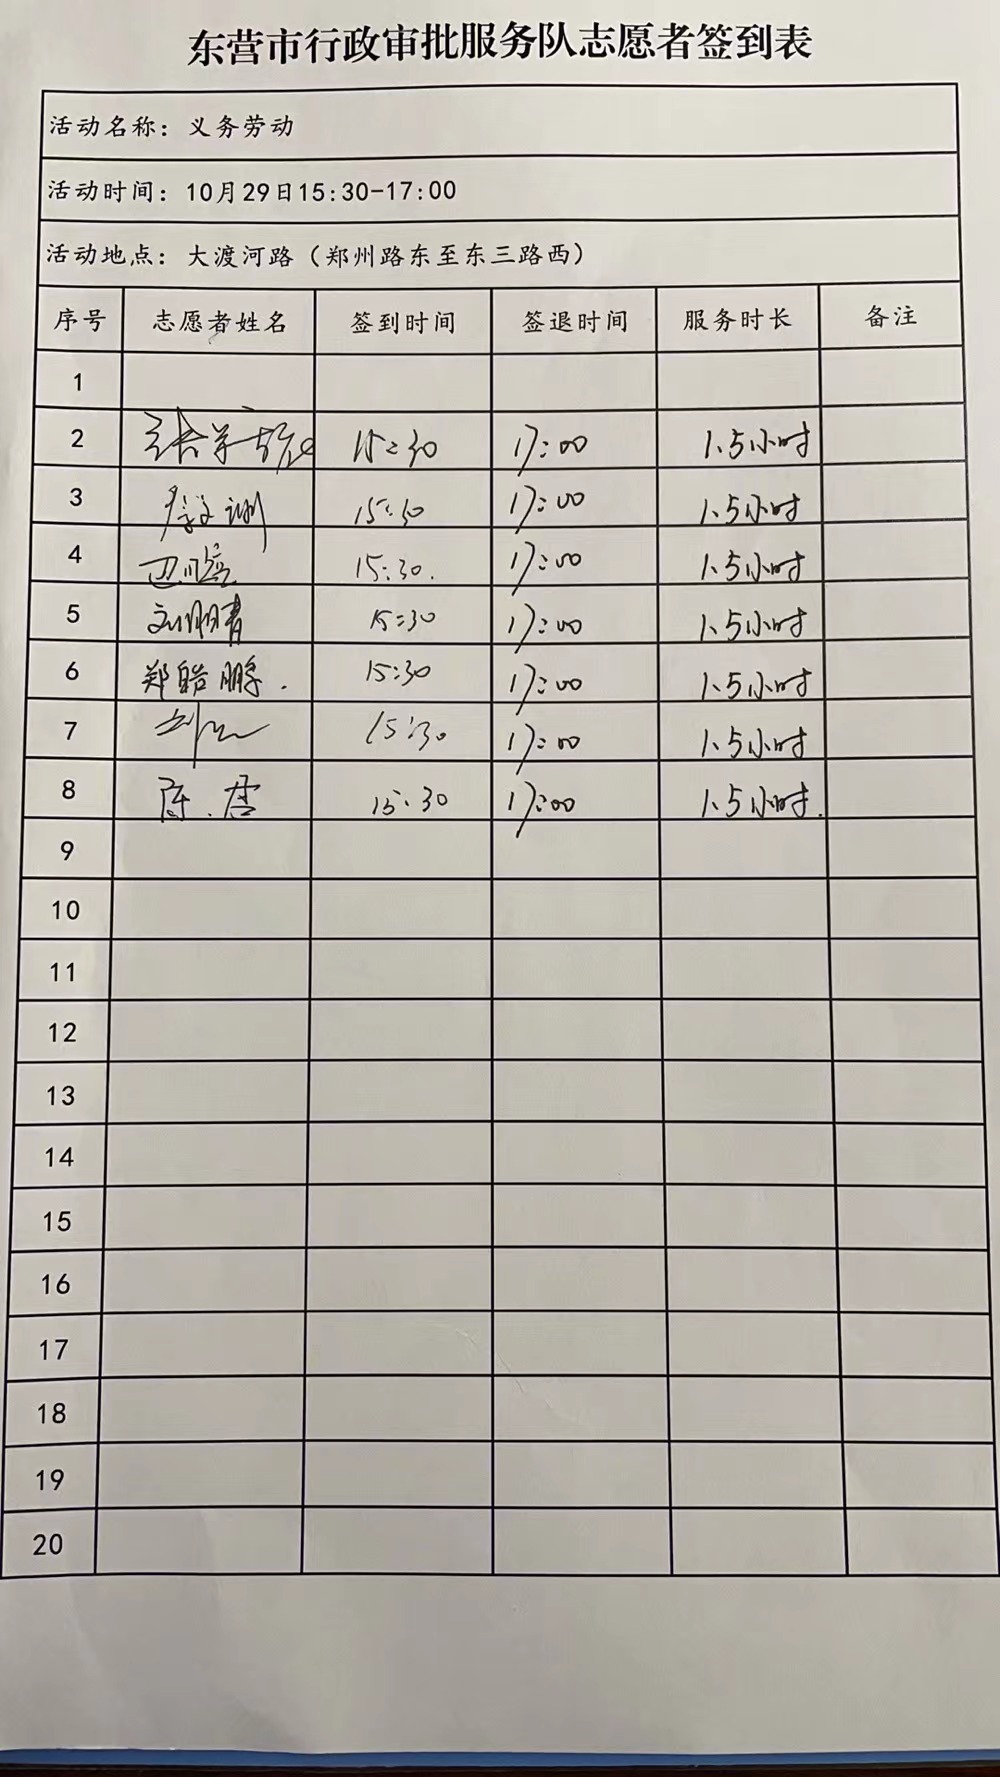 东营市行政审批服务队志愿者签到表
活动名称：义务劳动
活动时间：10月29日15:30-17:00
活动地点：大渡河路（郑州路东至东三路西）
序号 志愿者姓名 签到时间 签退时间 服务时长 备注
1
2 15:30 17:00 1.5小时
3 15:30 17:00 1.5小时
4 15:30. 17:00 1.5小时
5 刘明青 15:30 17:00 1.5小时
6 郑皓鹏. 15:30 17:00 1.5小时
7 15:30 17:00 1.5小时
8 15:30 17:00 1.5小时.
9
10
11
12
13
14
15
16
17
18
19
20